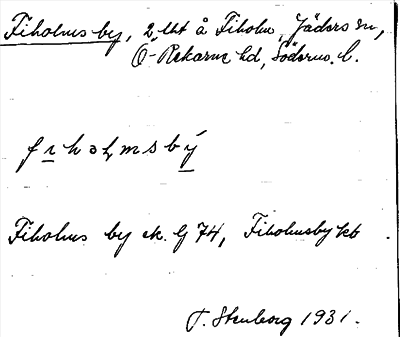 Fiholms by, 2 lht å Fiholm, Jäders sn,
Ö-Rekarne hd, Söderm. l.
fi̲holmsbý̲
Fiholms by ek. G 74, Fiholmsby kb
T. Stenborg 1931.